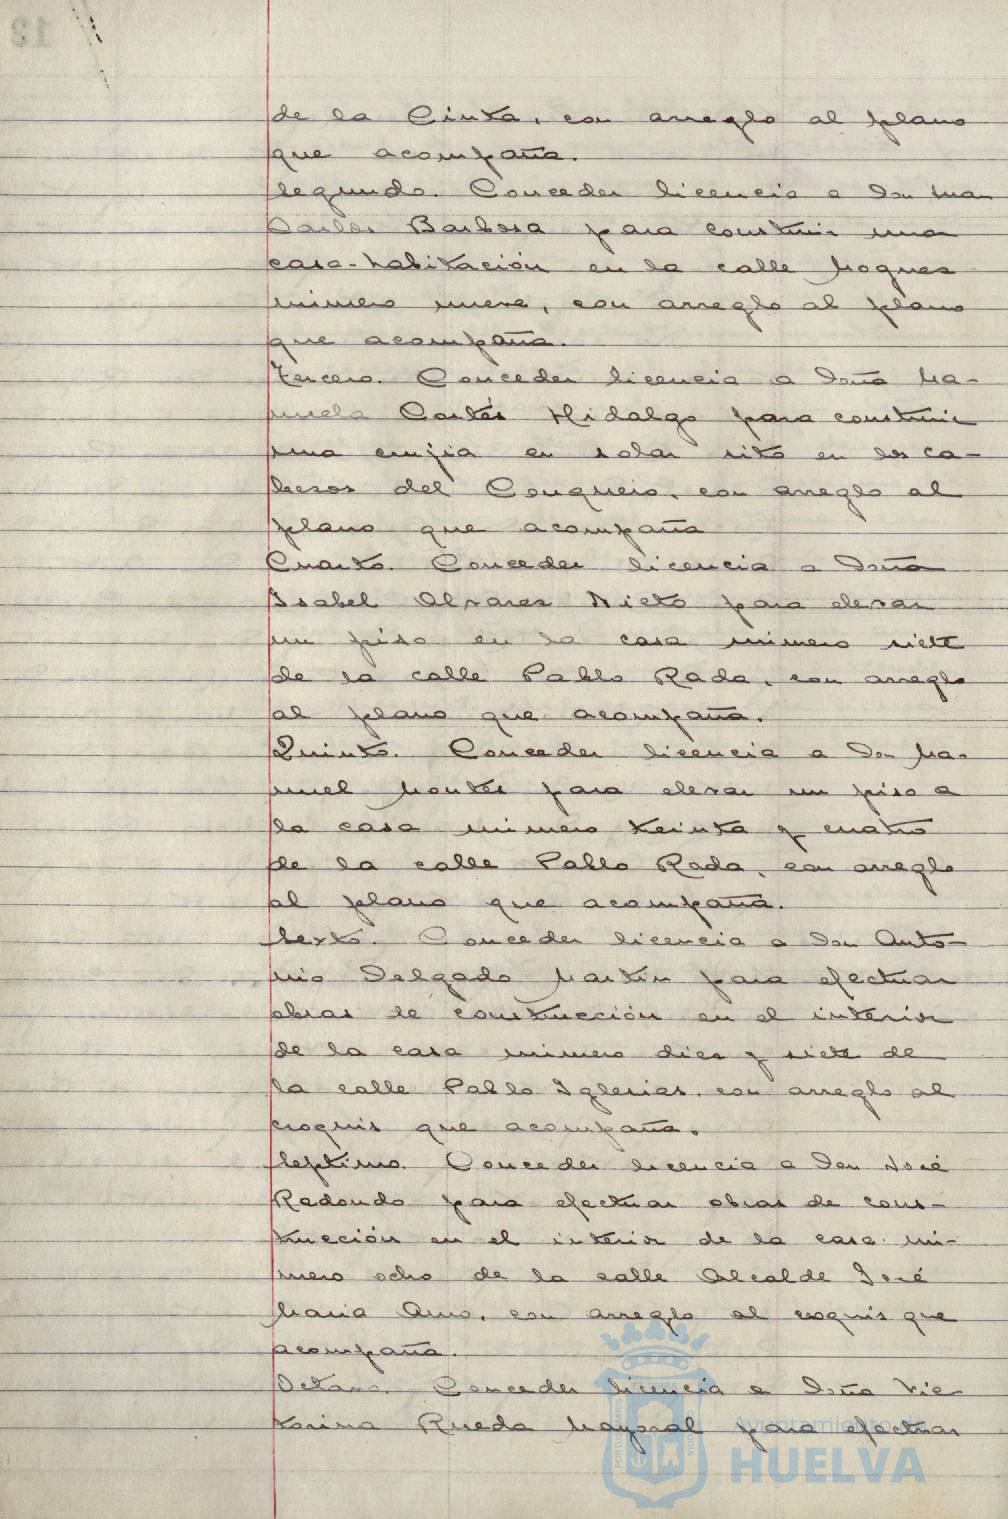 12
de la Cinta, con arreglo al plano
que acompaña.
Segundo. Conceder licencia a don Juan
Carlos Barbosa para construir una
casa-habitación en la calle Moguer
número nueve, con arreglo al plano
que acompaña.
Tercero. Conceder licencia a doña Ma-
nuela Cortés Hidalgo para construir
una crujia en solar sito en los ca-
bezos del Conquero, con arreglo al
plano que acompaña
Cuarto. Conceder licencia a doña
Isabel Alvarez Nieto para elevar
un piso en la casa número siete
de la calle Pablo Rada, con arreglo
al plano que acompaña.
Quinto. Conceder licencia a don Ma-
nuel Montes para elevar un piso a
la casa número treinta y cuatro
de la calle Pablo Rada, con arreglo
al plano que acompaña.
Sexto. Conceder licencia a don Anto-
nio Delgado Martín para efectuar
obras de construcción en el interior
de la casa número diez y siete de
la calle Pablo Iglesias, con arreglo al
croquis que acompaña.
Septimo. Conceder licencia a don José
Redondo para efectuar obras de cons-
trucción en el interior de la casa nú-
mero ocho de la calle Alcalde José
Maria Amo, con arreglo al croquis que
acompaña.
Octavo. Conceder licencia a doña Vic-
torina Rueda Mayoral para efectuar
Ayuntamiento de
HUELVA